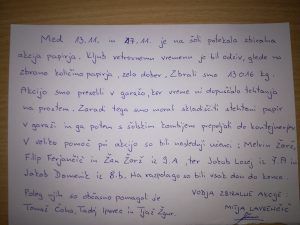 Med 13.11. in 27.11. je na šoli potekala zbiralna
akcija papirja. Kljub vetrovnemu vremenu je bil odziv, glede na
zbrano količino papirja, zelo dober. Zbrali smo 13016 kg.
Akcijo smo preselili v garažo, ker vreme ni dopuščalo tehtanja
na prostem. Zaradi tega smo morali skladiščiti stehtani papir
v garaži in ga potem s šolskim kombijem prepeljati do kontejnerjev.
V veliko pomoč pri akciji so bili naslednji učenci: Melvin Zorić,
Filip Ferjančič in Žan Žorž iz 9.A, ter Jakob iz 7.B in
Jakob Domenik iz 8.b. Na razpolago so bili vsak dan do konca.
Poleg njih so občasno pomagali še
VODJA ZBIRALNE AKCIJE:
Tomaž Čoha, Tadej in Tjaž Žgur.
MITJA LAVRENČIČ